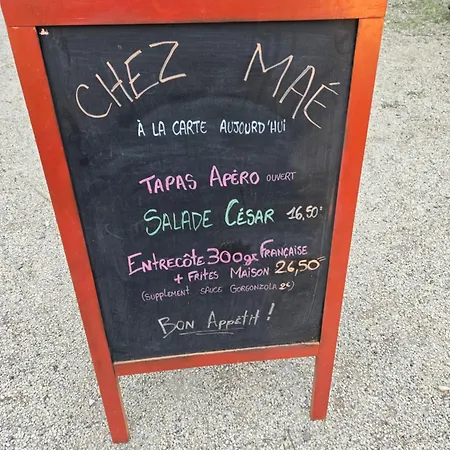 CHEZ MAÉ
À LA CARTE AUJOURD'HUI
TAPAS APÉRO OUVERT
SALADE CÉSAR 16,50€
ENTRECÔTE 300gr FRANÇAISE
+ FRITES MAISON 26,50€
(SUPPLEMENT SAUCE GORGONZOLA 2€)
BON APPÉTIT !